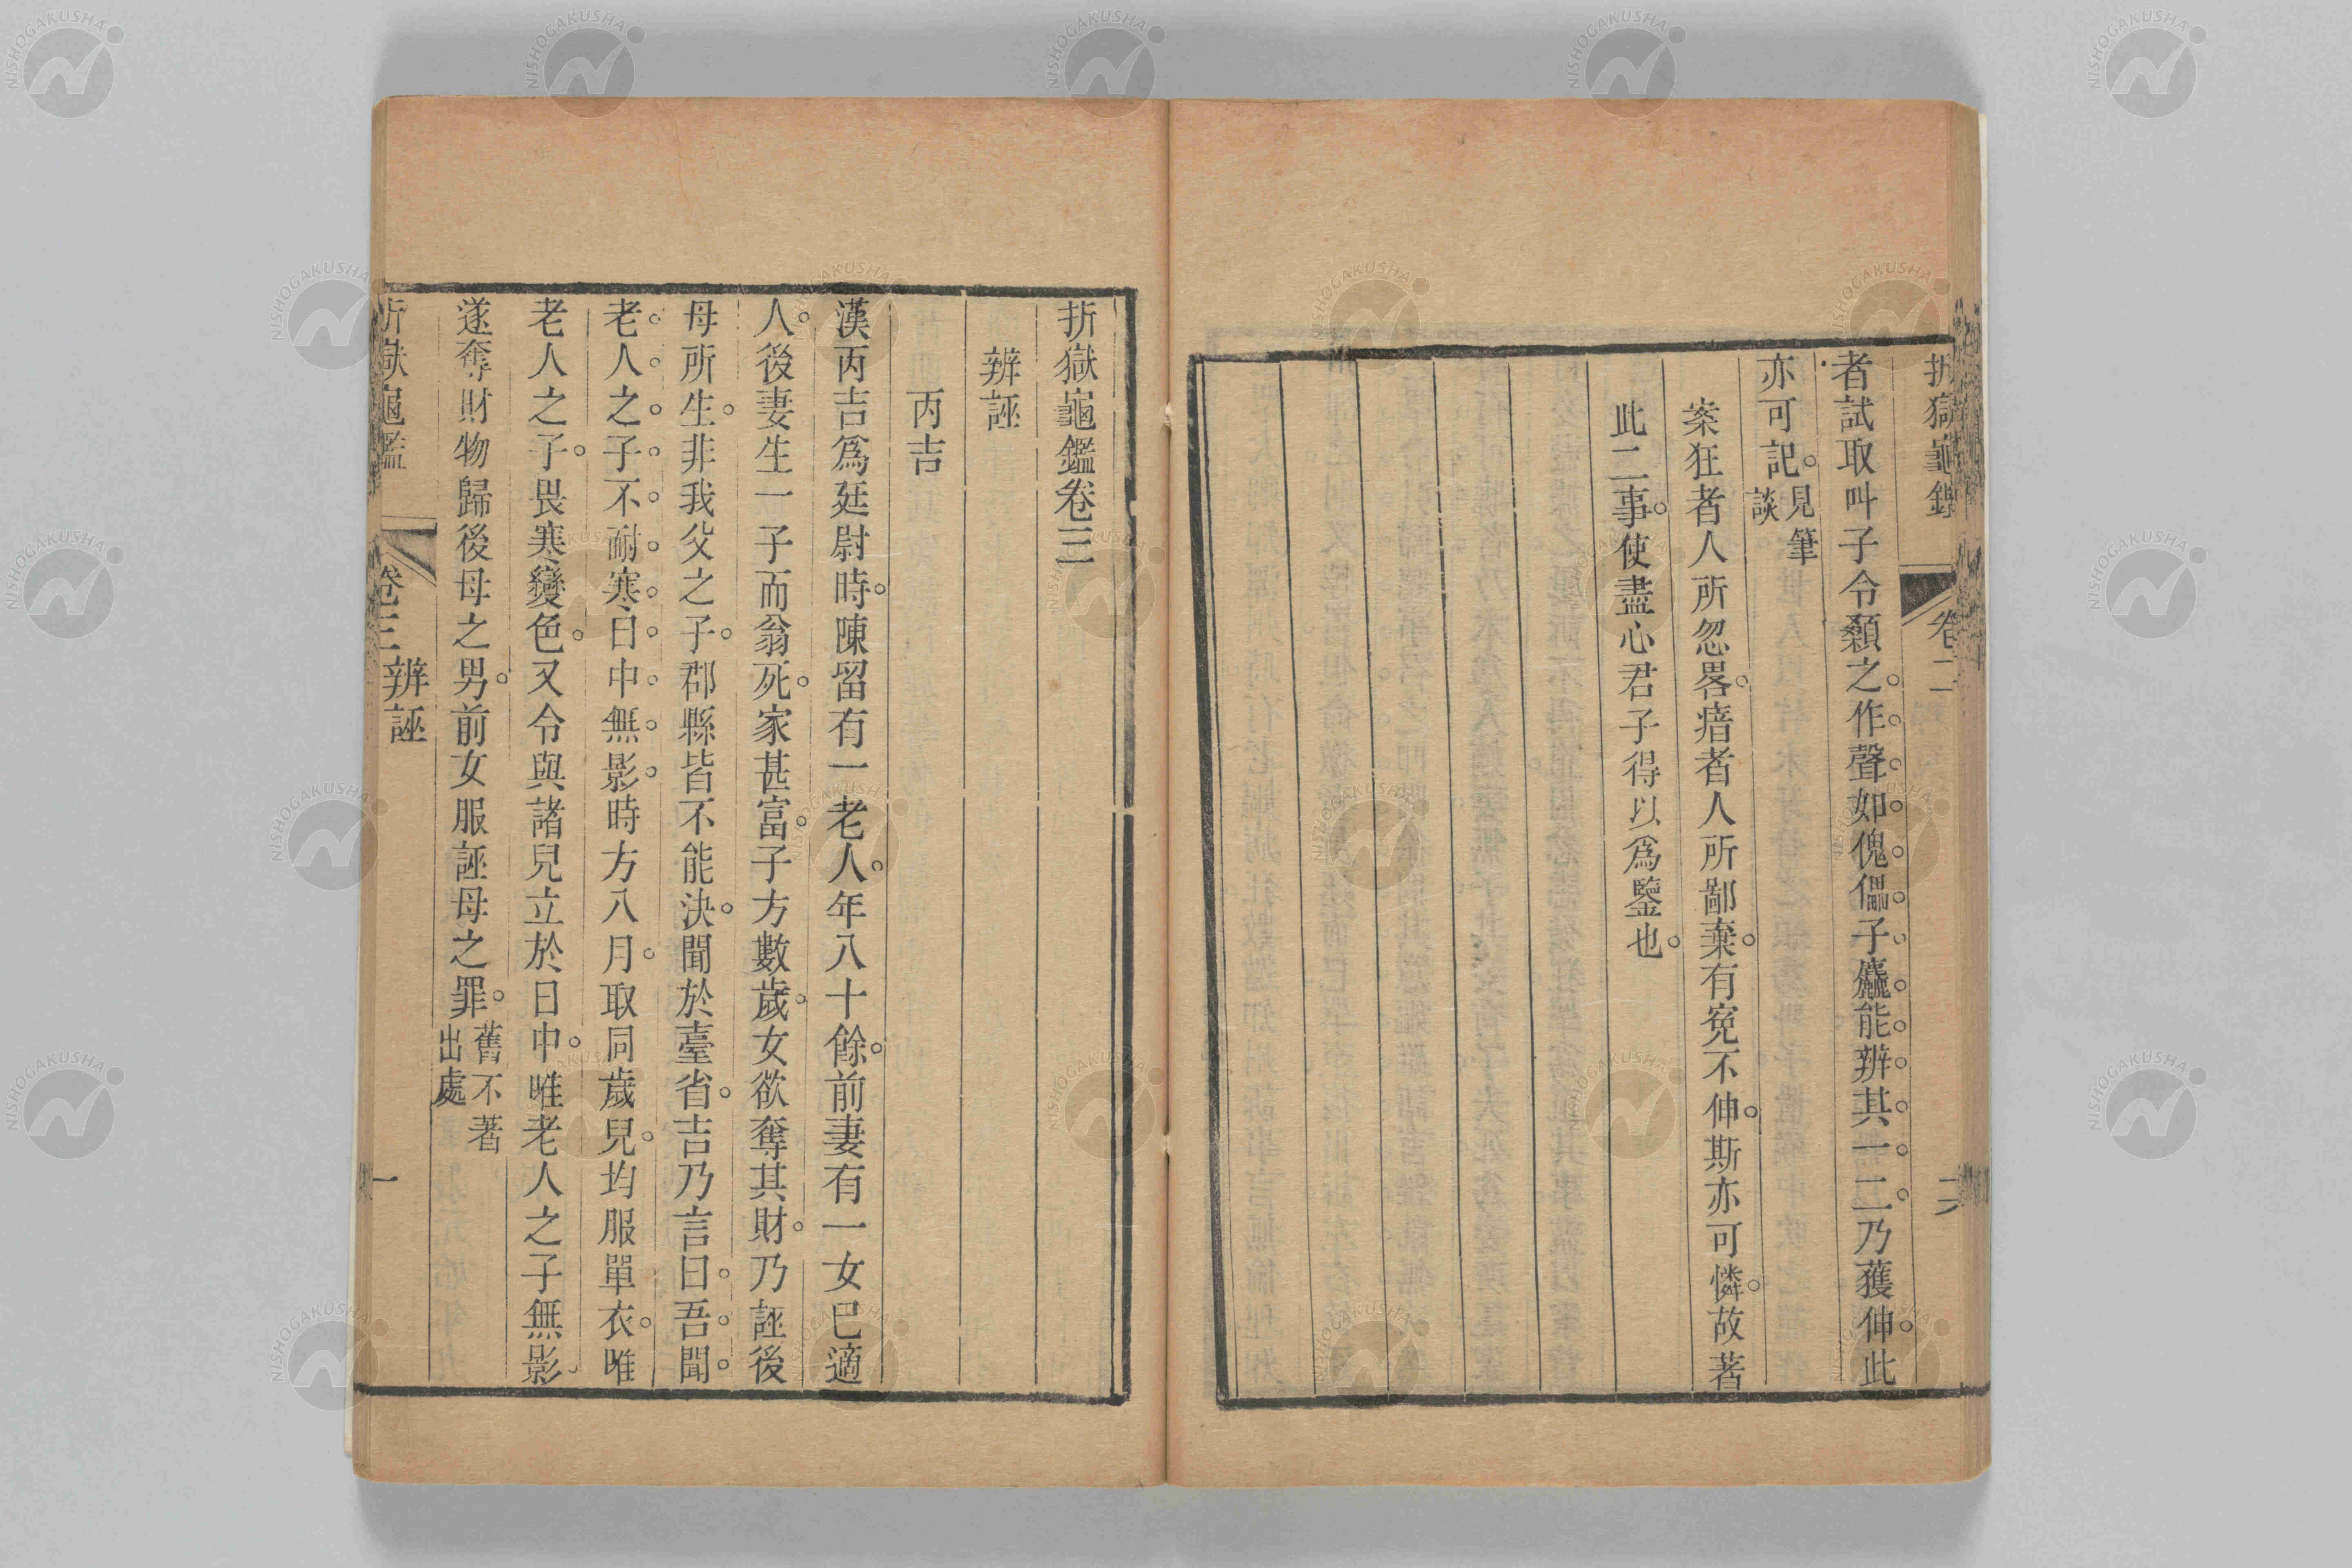 折獄龜鑑 卷二 六
者試取叫子令顙之。作聲如傀儡子麤能辨其一二。乃獲伸。此
亦可記。見筆談
案狂者人所忽畧。瘖者人所鄙棄。有寃不伸。斯亦可憐。故著
此二事。使盡心君子得以爲鑒也。
折獄龜鑑卷三
辨誣
丙吉
漢丙吉爲廷尉時。陳留有一老人。年八十餘。前妻有一女巳適
人。後妻生一子而翁死。家甚富。子方數歲。女欲奪其財。乃誣後
母所生。非我父之子。郡縣皆不能決。聞於臺省。吉乃言曰。吾聞
老人之子不耐寒。日中無影。時方八月。取同歲兒。均服單衣。唯
老人之子。畏寒變色。又令與諸兒立於日中。唯老人之子無影。
遂奪財物歸後母之男。前女服誣母之罪。舊不著出處
折獄龜鑑 卷三 辨誣 一
NISHOGAKUSHA